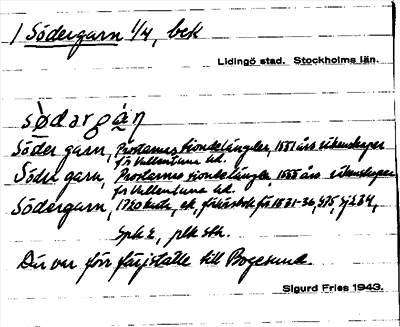 1 Södergarn 1/4, bek
Lidingö stad. Stockholms län.
södargàn
Söder garn, Prostarnas tiondelängder, 1551 års räkenskaper
för Vallentuna hd.
Södre garn, Prostarnas tiondelängder, 1555 års räkenskaper
för Vallentuna hd.
Södergarn, 1720
Spk E,
Du var förr färjställe till Bogesund.
Sigurd Fries 1943.